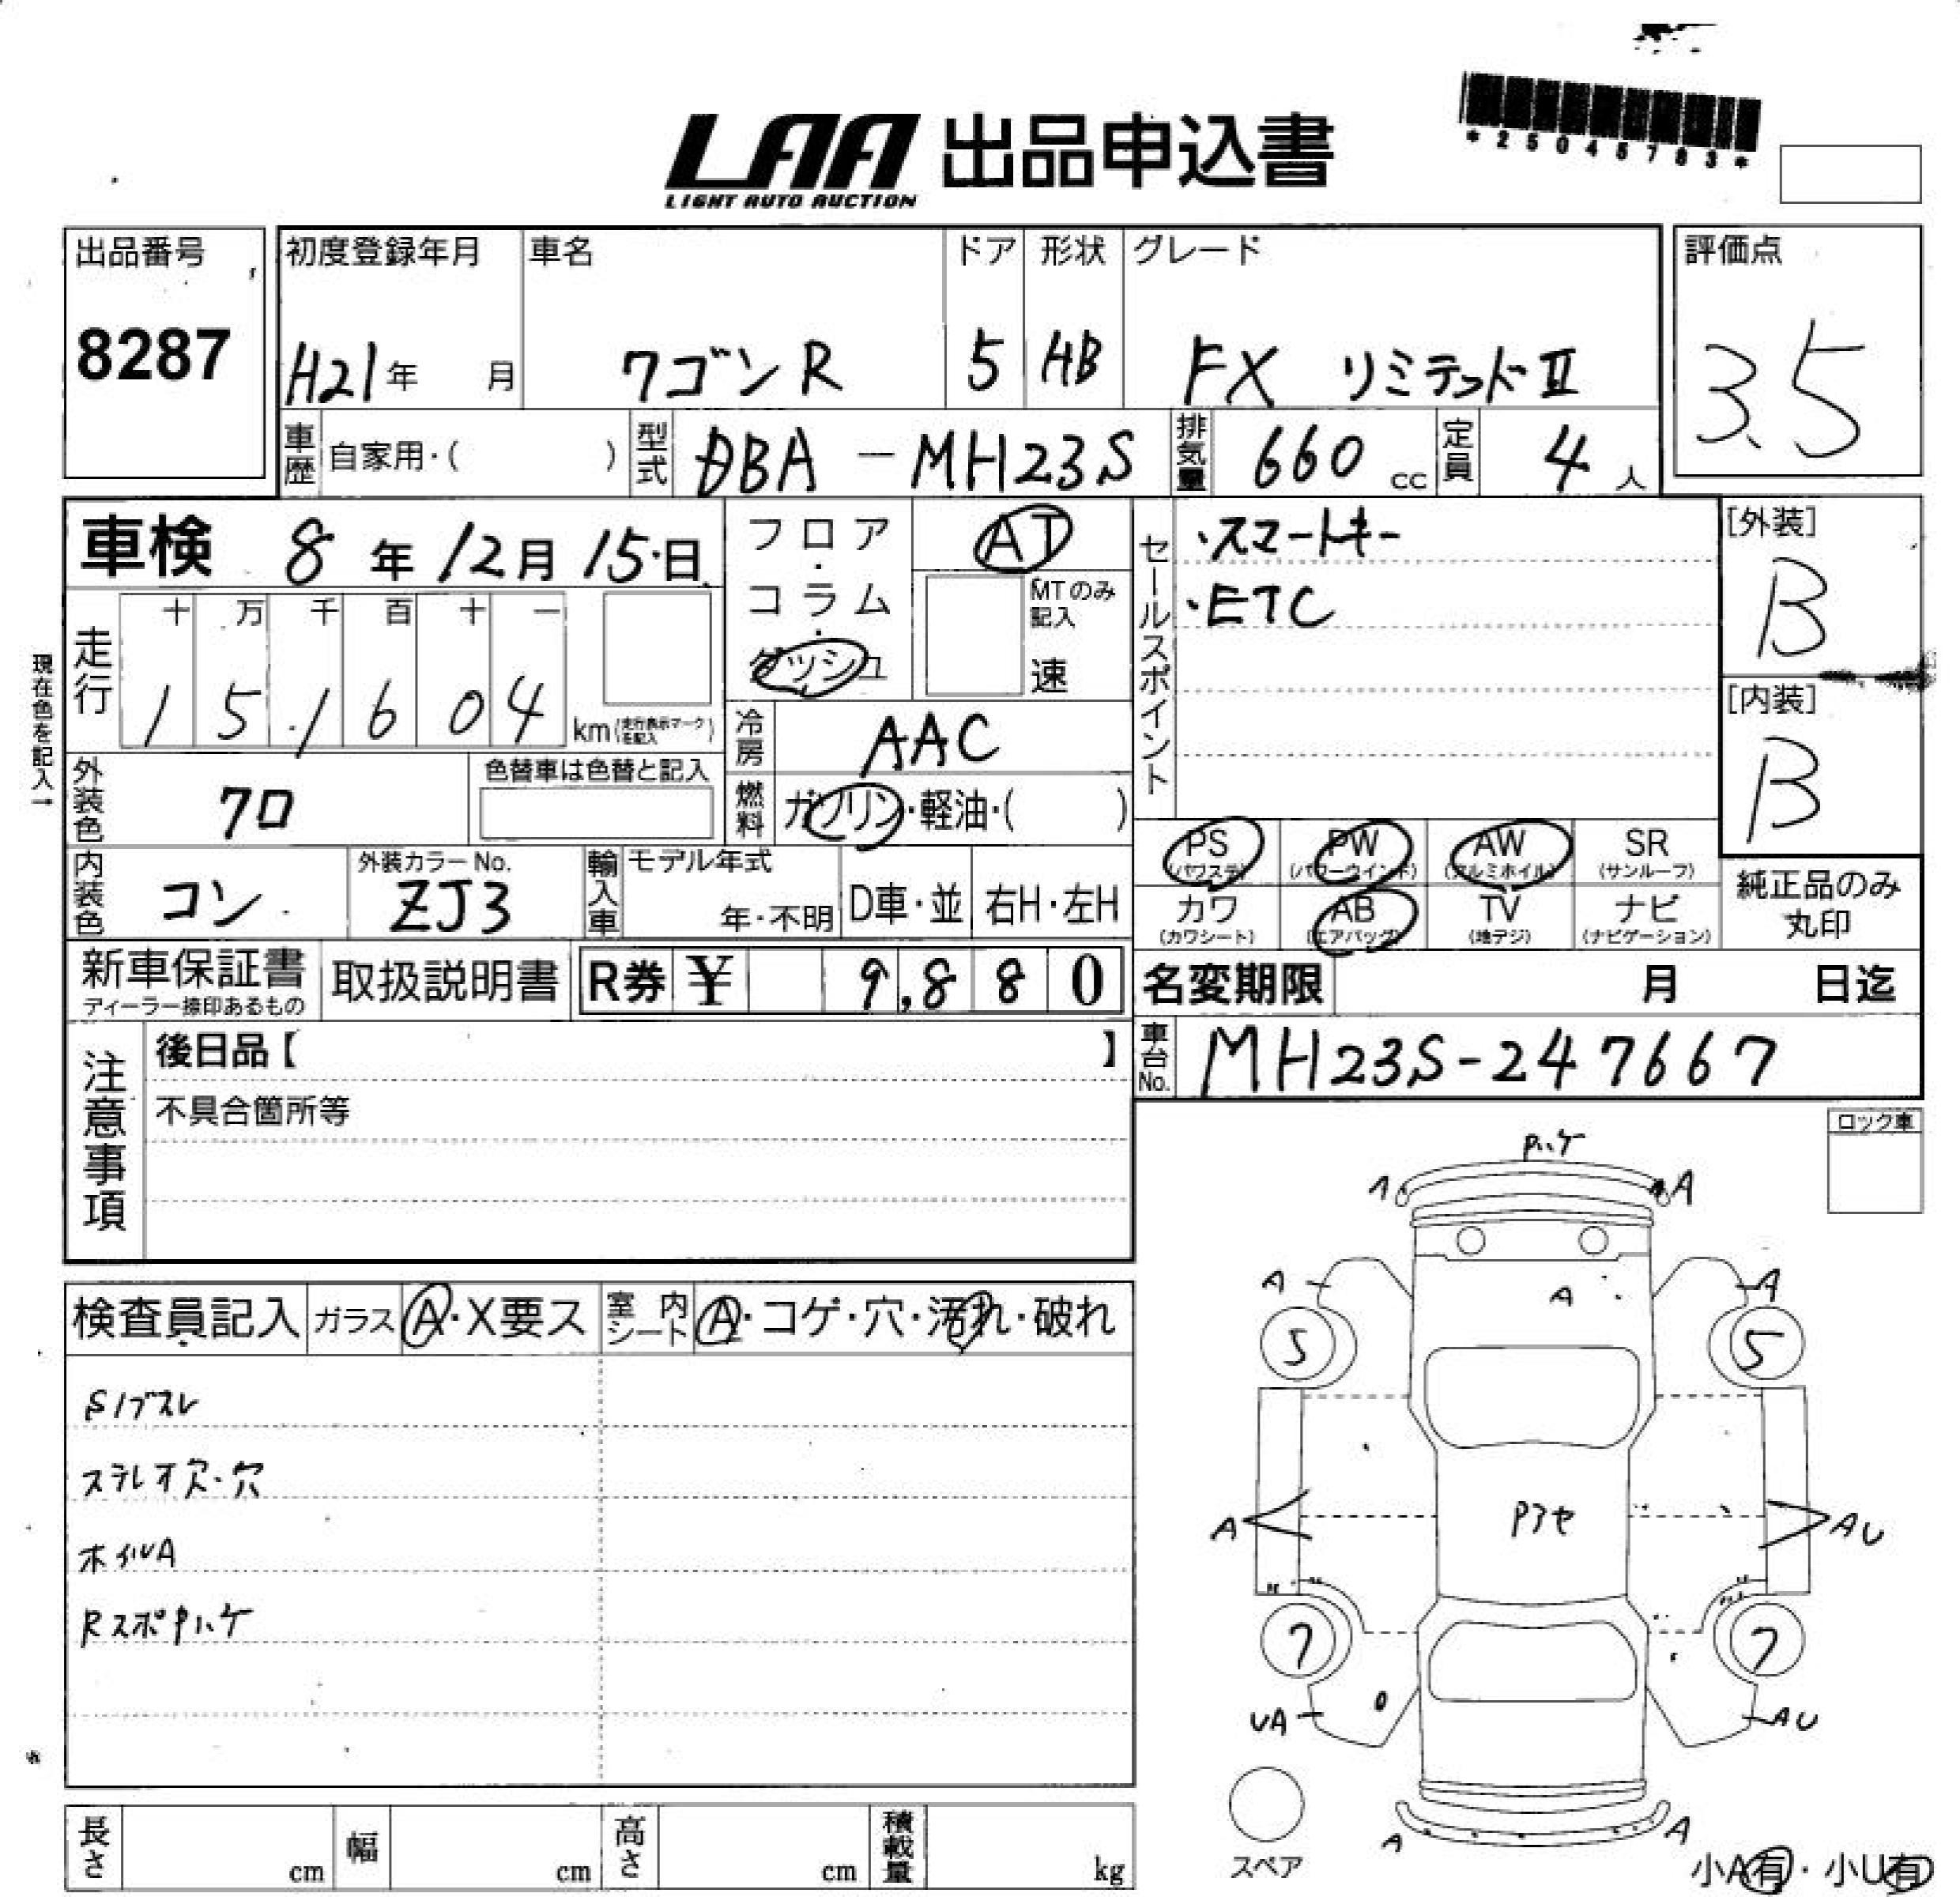 LAA 出品申込書
LIGHT AUTO AUCTION
出品番号
8287
初度登録年月
H21年 月
車名
ワゴンR
ドア
5
形状
HB
グレード
FX リミテッドⅡ
評価点
3.5
車歴 自家用・( )
型式 DBA-MH23S
排気量 660 cc
定員 4 人
車検 8年12月15日
フロア・コラム・ダッシュ
AT
MTのみ記入
速
セールスポイント
・スマートキー
・ETC
[外装]
B
[内装]
B
現在色を記入→
走行
十 万 千 百 十 一
1 5 1 6 0 4
km(走行表示マークを記入)
冷房 AAC
外装色 クロ
色替車は色替と記入
燃料 ガソリン・軽油・( )
PS (パワステ)
PW (パワーウインド)
AW (アルミホイル)
SR (サンルーフ)
カワ (カワシート)
AB (エアバッグ)
TV (地デジ)
ナビ (ナビゲーション)
純正品のみ
丸印
内装色 コン
外装カラーNo.
ZJ3
輸入車
モデル年式
年・不明
D車・並
右H・左H
新車保証書
ディーラー捺印あるもの
取扱説明書
R券 ¥ 9,880
名変期限 月 日迄
車台No. MH23S-247667
注意事項
後日品【 】
不具合箇所等
ロック車
検査員記入
ガラス A・X要ス
室内シート A・コゲ・穴・汚れ・破れ
ステレオ穴・穴
ホイルA
A
A
A
A
A
5
5
A
AU
Pアセ
7
7
UA
AU
A
A
スペア
小A有・小U有
長さ cm
幅 cm
高さ cm
積載量 kg